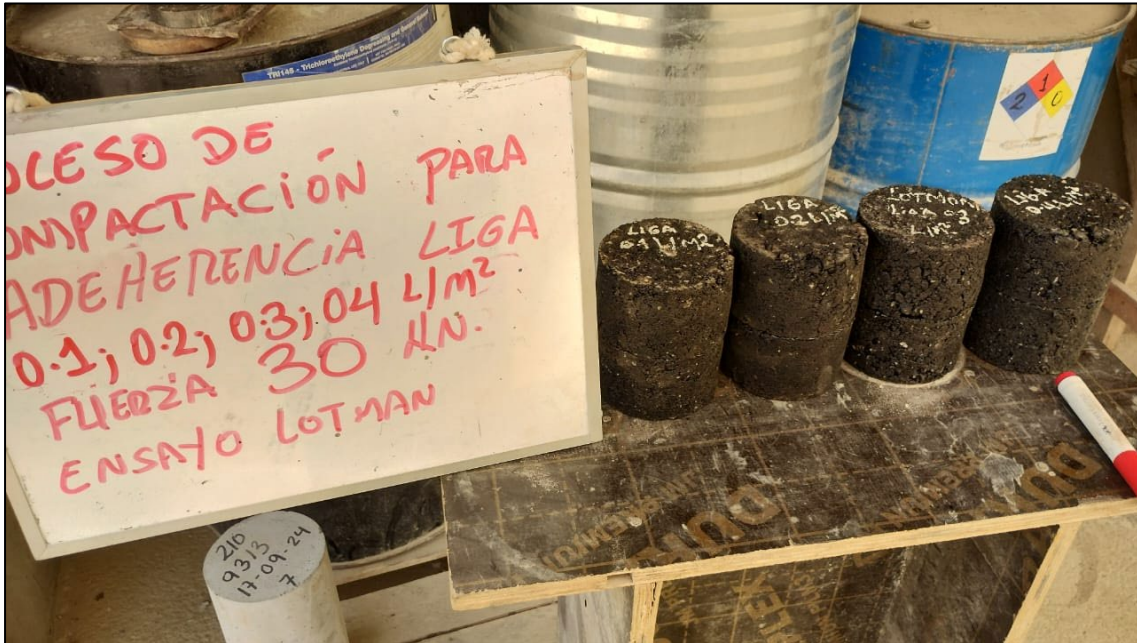 TRI145 - Trichloroethylene Degreasing and
OCESO DE
OMPACTACIÓN PARA
ADEHERENCIA LIGA
0.1; 0.2; 0.3; 04 L/m²
FUERZA 30 KN.
ENSAYO LOTMAN
LIGA
0.1 L/M2
LIGA
02 L/M2
LOTMAN
LIGA 03
L/m²
LIGA
2 1 0
210
9313
17-09-24
7